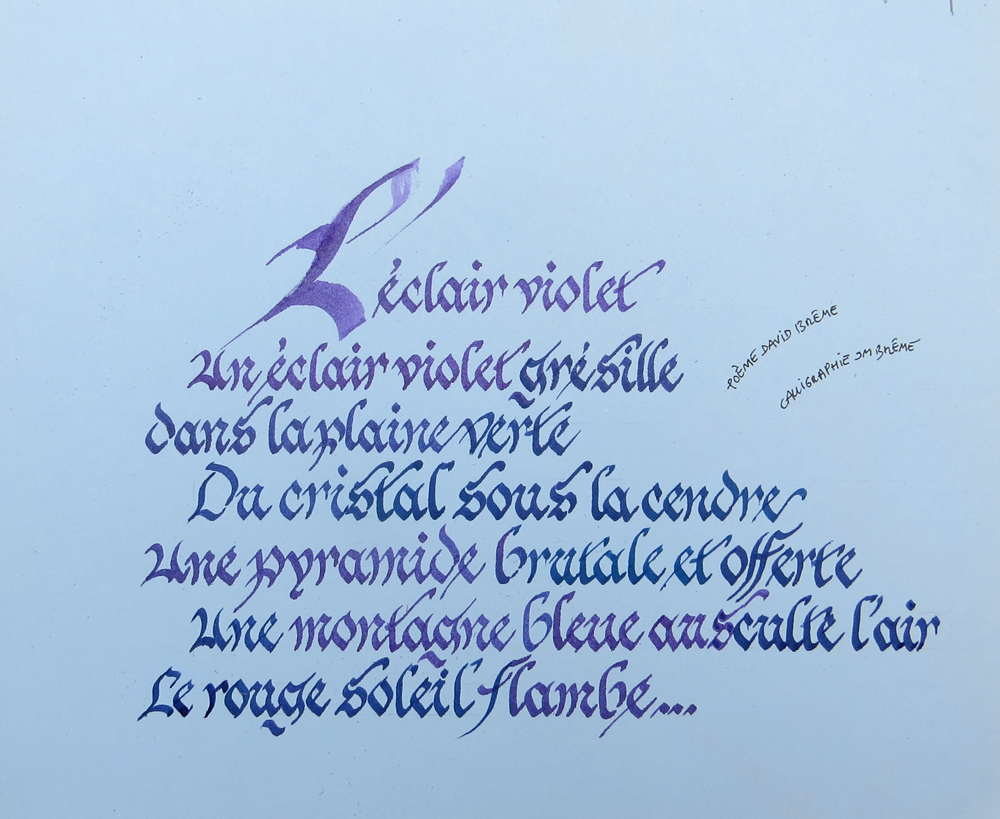 L'éclair violet
Un éclair violet grésille
dans la plaine verte
Du cristal sous la cendre
Une pyramide brutale et offerte
Une montagne bleue ausculte l'air
Le rouge soleil flambe...
POÈME DAVID BRÊME
CALLIGRAPHIE JM BRÊME